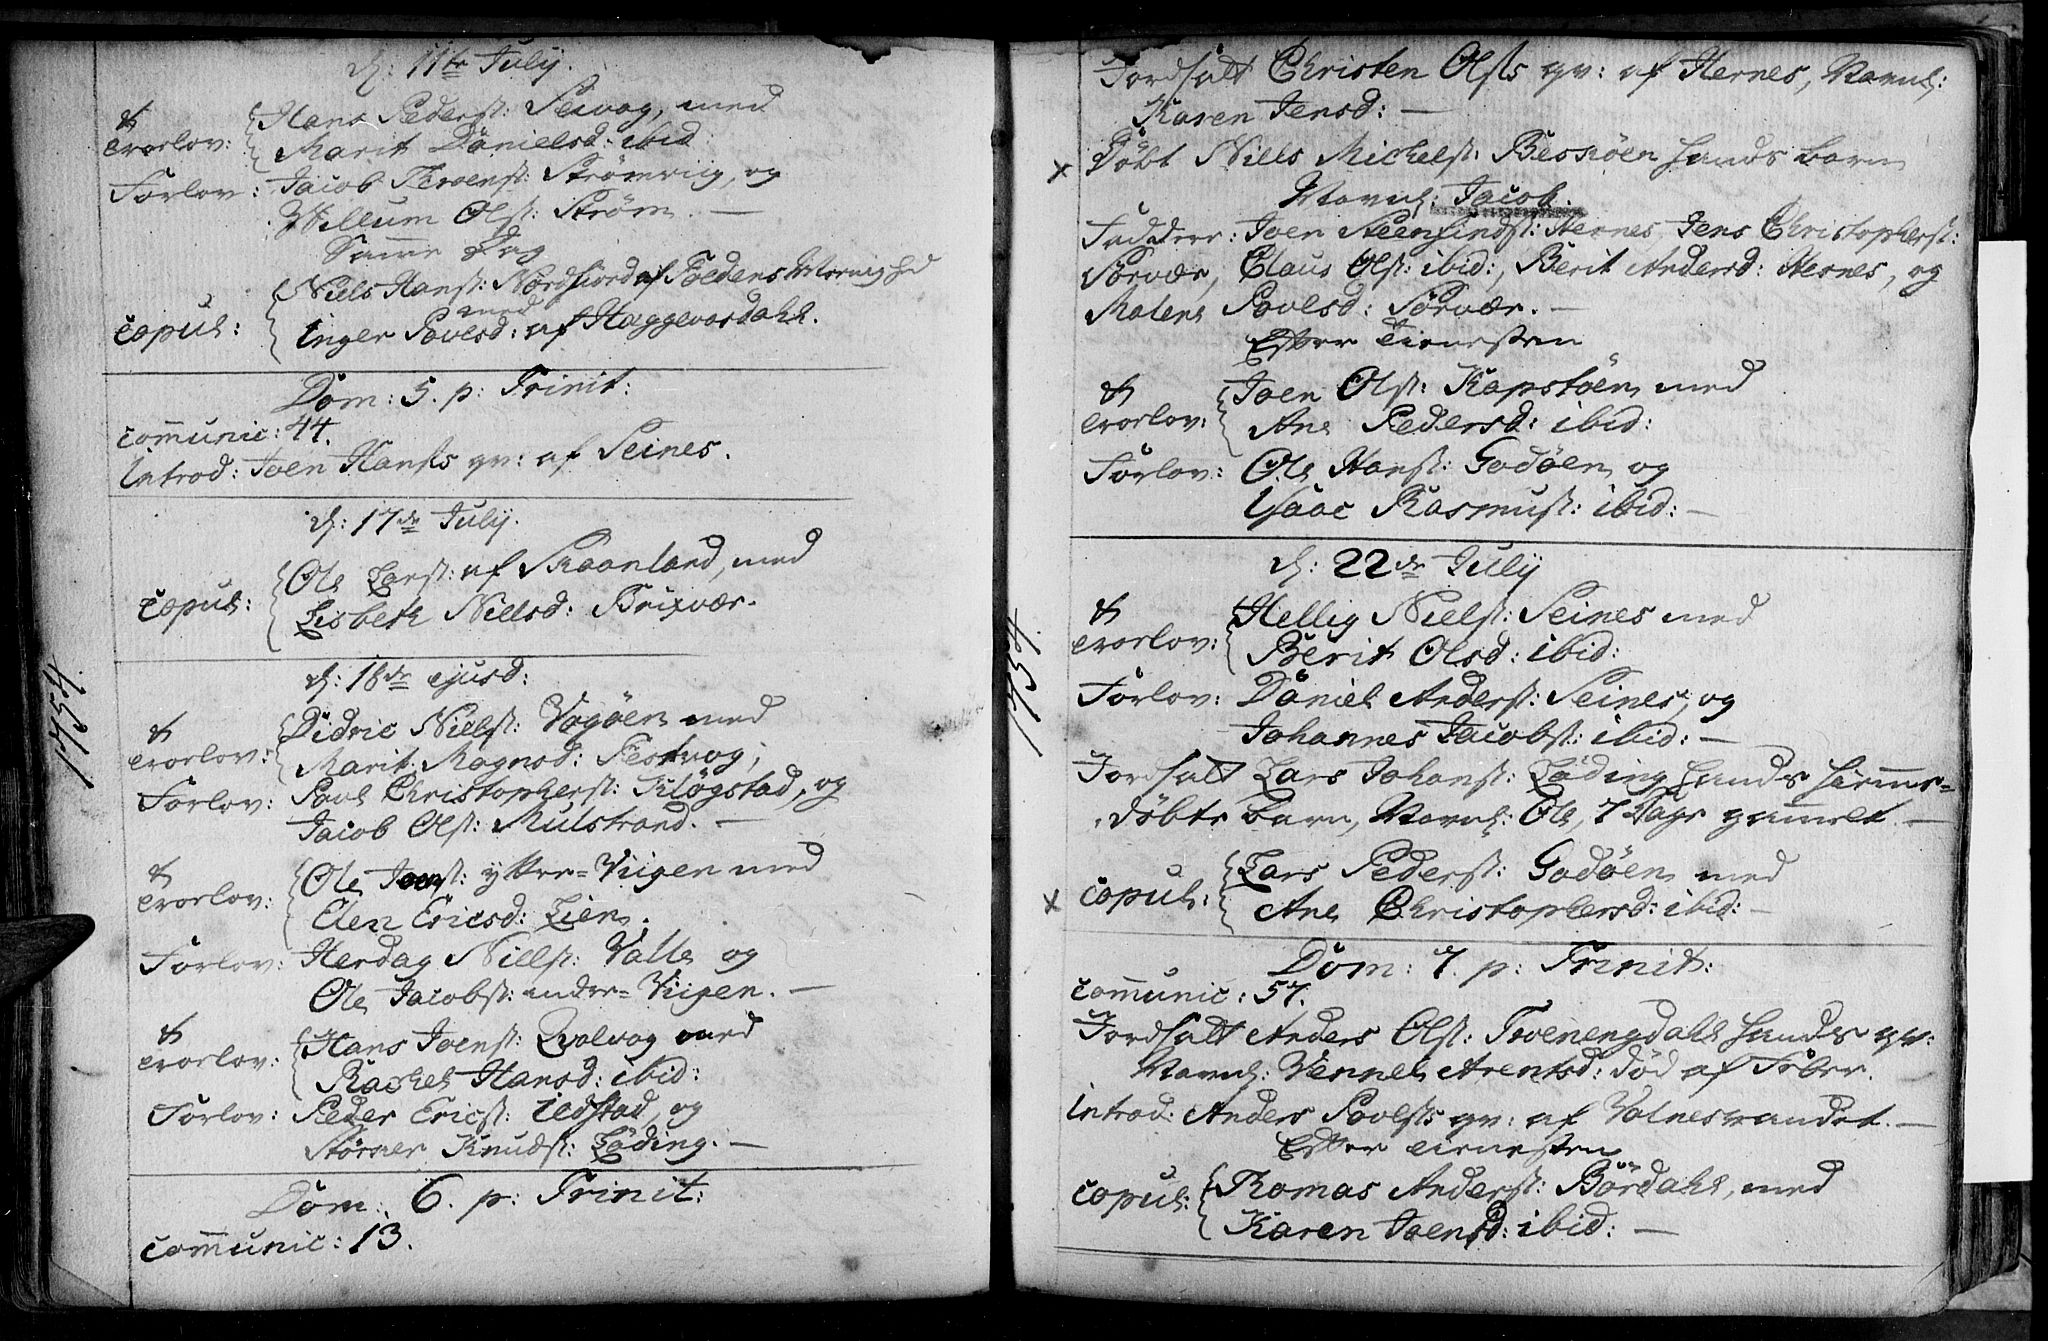 1754.
d: 11te July.
Trorlov: Hans Peders: Seivog, med
Marit Danielsd: ibid
Forlov: Jacob Iversens: Strømviig, og
Willum Ols: Strøm. —
Samme Dag
Copul: Niels Hans: Nordfiord af Foldens Menighed
med
Inger Povelsd: af Haggevasdahl.
Dom: 5. p: Trinit:
Communic: 44.
Introd: Joen Hans:s qv: af Seines.
d: 17de July.
Copul: Ole Lars: af Skaanland, med
Lisbeth Nielsd: Brixvær.
d: 18de ejusd:
Trorlov: Didric Niels: Vogøen med
Marit Magnsd: Festvog;
Forlov: Povl Christophers: Kløgstad, og
Jacob Ols: Mulstrand. —
Trorlov: Ole Joens: yttre=Viigen med
Elen Ericsd: Lien.
Forlov: Herdag Niels: Valle og
Ole Jacobs: indre=Viigen. —
Trorlov: Hans Joens: Qvalvog med
Rachel Hansd: ibid:
Forlov: Peder Erics: Ildstad, og
Størker Knuds: Løding. —
Dom: 6. p: Trinit:
Communic: 13.
1754.
Jordfalt Christen Ols:s qv: af Hernes, Navnl:
Karen Jensd: —
x Døbt Niels Michels: Beskøen hands barn
Navnl: Jacob.
Faddere: Joen Steensinds: Hernes, Jens Christophers:
Sørvær, Claus Ols: ibid:, Berit Andersd: Hernes, og
Malene Povelsd: Sørvær. —
Efter Tienesten
Trorlov: Joen Ols: Kapstøen med
Ane Pedersd: ibid:
Forlov: Ole Hans: Godøen og
Isaac Rasmus: ibid: —
d: 22de July
Trorlov: Hellig Niels: Seines med
Berit Olsd: ibid:
Forlov: Daniel Anders: Seines, og
Johannes Jacobs: ibid: —
Jordfalt Lars Johans: Løding hands hiemme=
døbte barn, Navnl: Ole, 7 Dage gammelt. —
x Copul: Lars Peders: Godøen med
Ane Christophersd: ibid: —
Dom: 7. p: Trinit:
Communic: 57.
Jordfalt Anders Ols: Tverengdahl hands qv:
Navnl: Vennel Arentsd: død af Feber.
Introd: Anders Povels:s qv: af Valnesvandet. —
Efter Tienesten
Copul: Thomas Anders: Børdahl, med
Karen Joensd: ibid: —